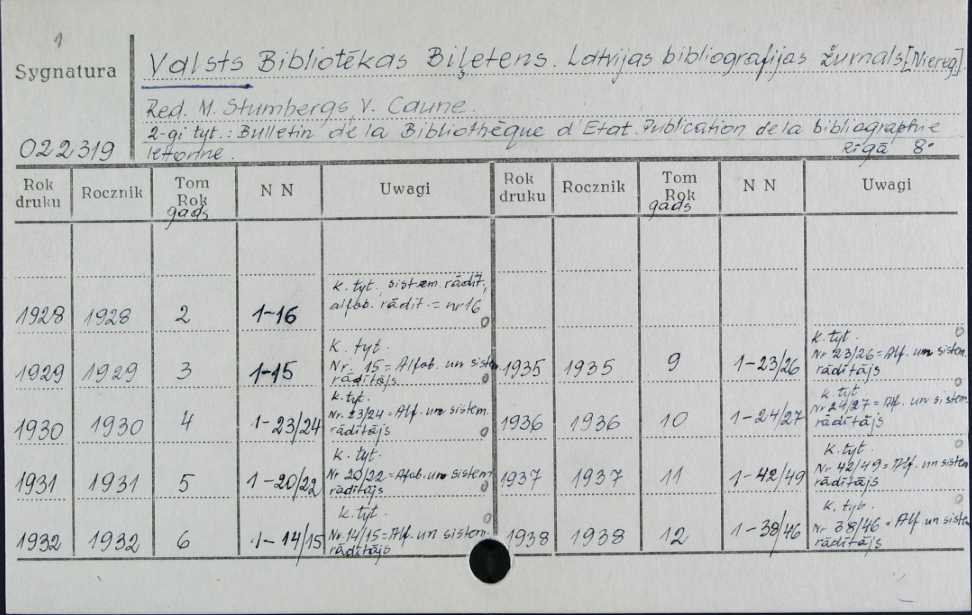 1
Sygnatura
022319
Valsts Bibliotēkas Biļetens. Latvijas bibliografijas žurnals [Niereg].
Red. M. Stumbergs, V. Caune.
2-gi tyt.: Bulletin de la Bibliothèque d'Etat. Publication de la bibliographie
lettonne. Rīgā 8°
Rok druku Rocznik Tom Rok gads N N Uwagi Rok druku Rocznik Tom Rok gads N N Uwagi
1928 1928 2 1-16 k. tyt., sistem. rādīt.,
alfab. rādīt. = nr 16
1929 1929 3 1-15 k. tyt.
Nr. 15 = Alfab. un sistem
rādītājs
1935 1935 9 1-23/26 k. tyt.
Nr 23/26 = Alf. un sistem.
rādītājs
1930 1930 4 1-23/24 k. tyt.
Nr. 23/24 = Alf. un sistem.
rādītājs
1936 1936 10 1-24/27 k. tyt
Nr 24/27 = Alf. un sistem
rādītājs
1931 1931 5 1-20/22 k. tyt.
Nr 20/22 = Alfab. un sistem
rādītājs
1937 1937 11 1-42/49 k. tyt.
Nr 42/49 = Alf. un sistem
rādītājs
1932 1932 6 1-14/15 k. tyt.
Nr. 14/15 = Alf. un sistem.
rādītājs
1938 1938 12 1-38/46 k. tyt.
Nr 38/46 = Alf. un sistem
rādītājs